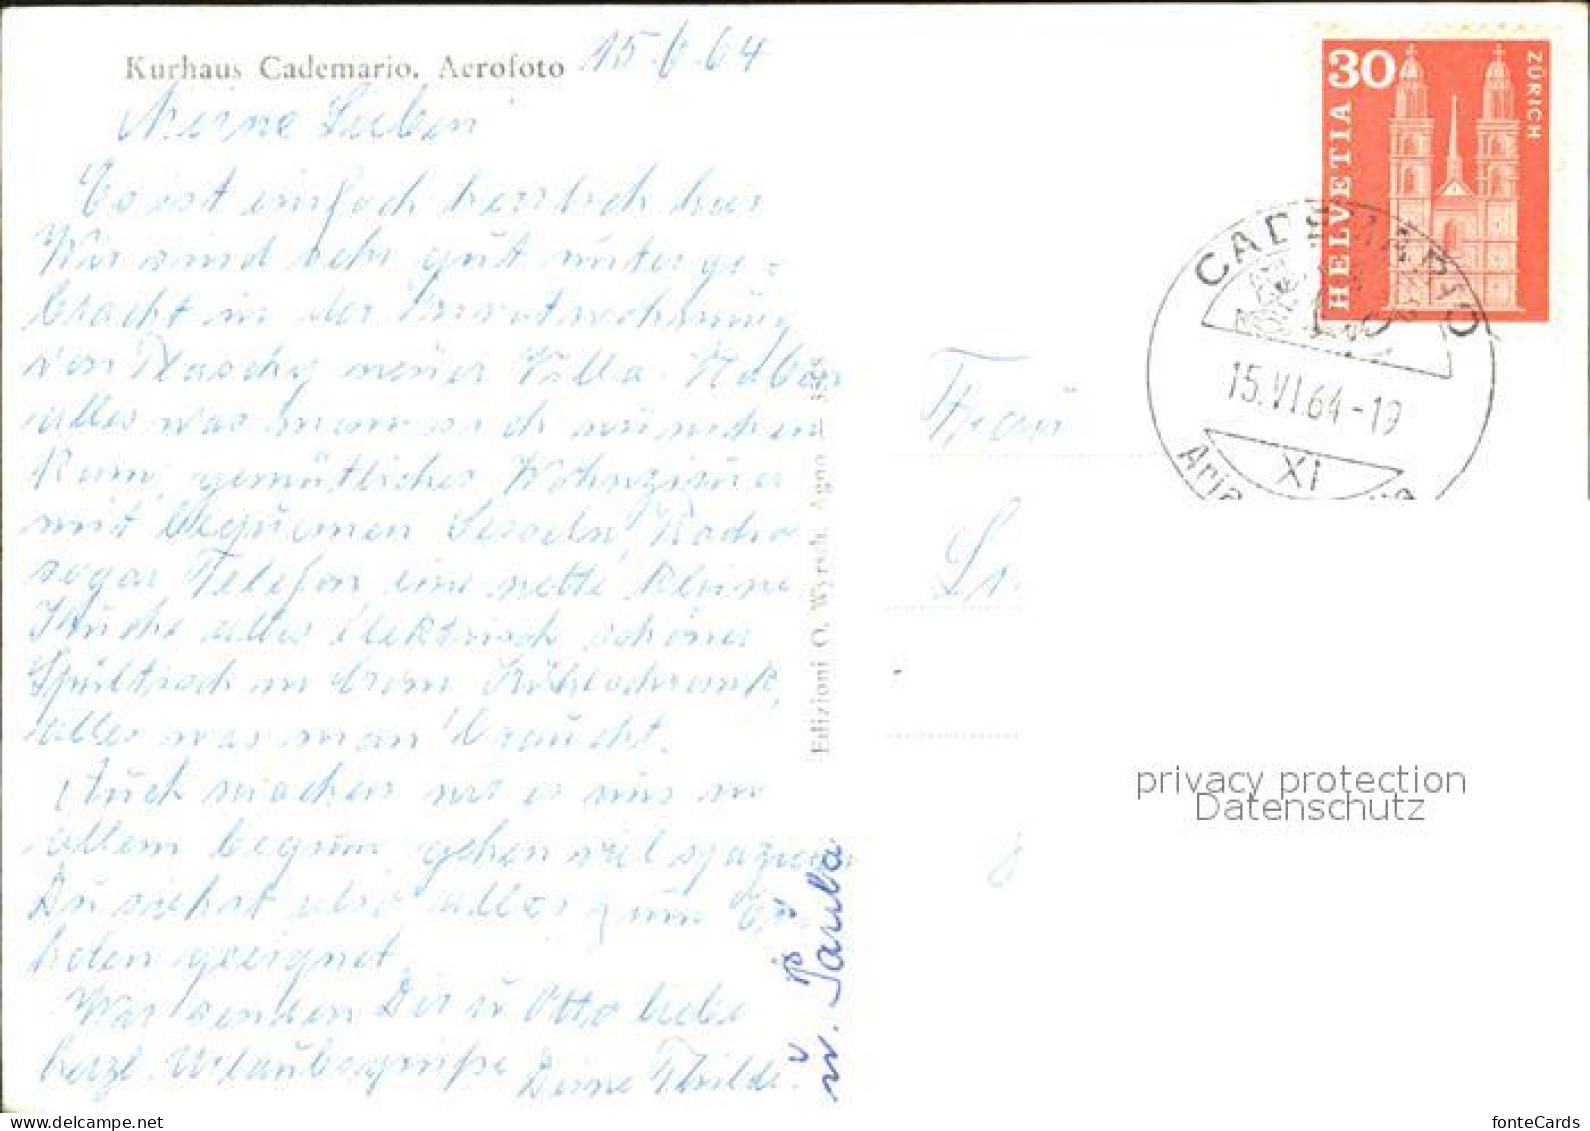 Kurhaus Cademario. Aerofoto
15.6.64
Meine Lieben
Es ist einfach herrlich hier
Wir sind sehr gut unterge-
bracht in der Privatwohnung
von neuer Villa. Haben
alles was man sich wünschen
kann, gemütliches Wohnzimmer
mit bequemen Sesseln, Radio
sogar Telefon eine nette kleine
Küche alles elektrisch schöner
Spültisch in Crom, Kühlschrank,
alles was man braucht.
Auch machen wir es uns in
allem bequem, gehen viel spazieren
Du siehst also alles zum Er-
holen geeignet.
Wir senden Dir u Otto liebe
herzl. Urlaubsgrüße Deine Thilde.
u. Paula
Edizioni O. Wyrsch, Agno
30
HELVETIA
ZÜRICH
CADEMARIO
15.VI.64-19
XI
Aria
Frau
privacy protection
Datenschutz
www.delcampe.net
fonteCards